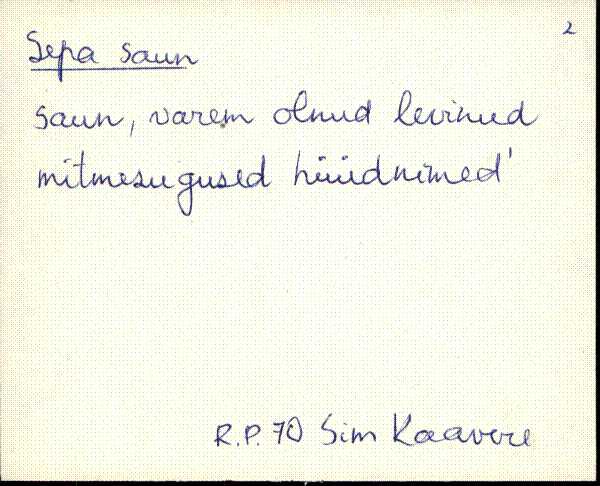 2
Sepa saun
saun, varem olnud levinud
mitmesugused hüüdnimed'
R.P. 70 Sim Kaavere